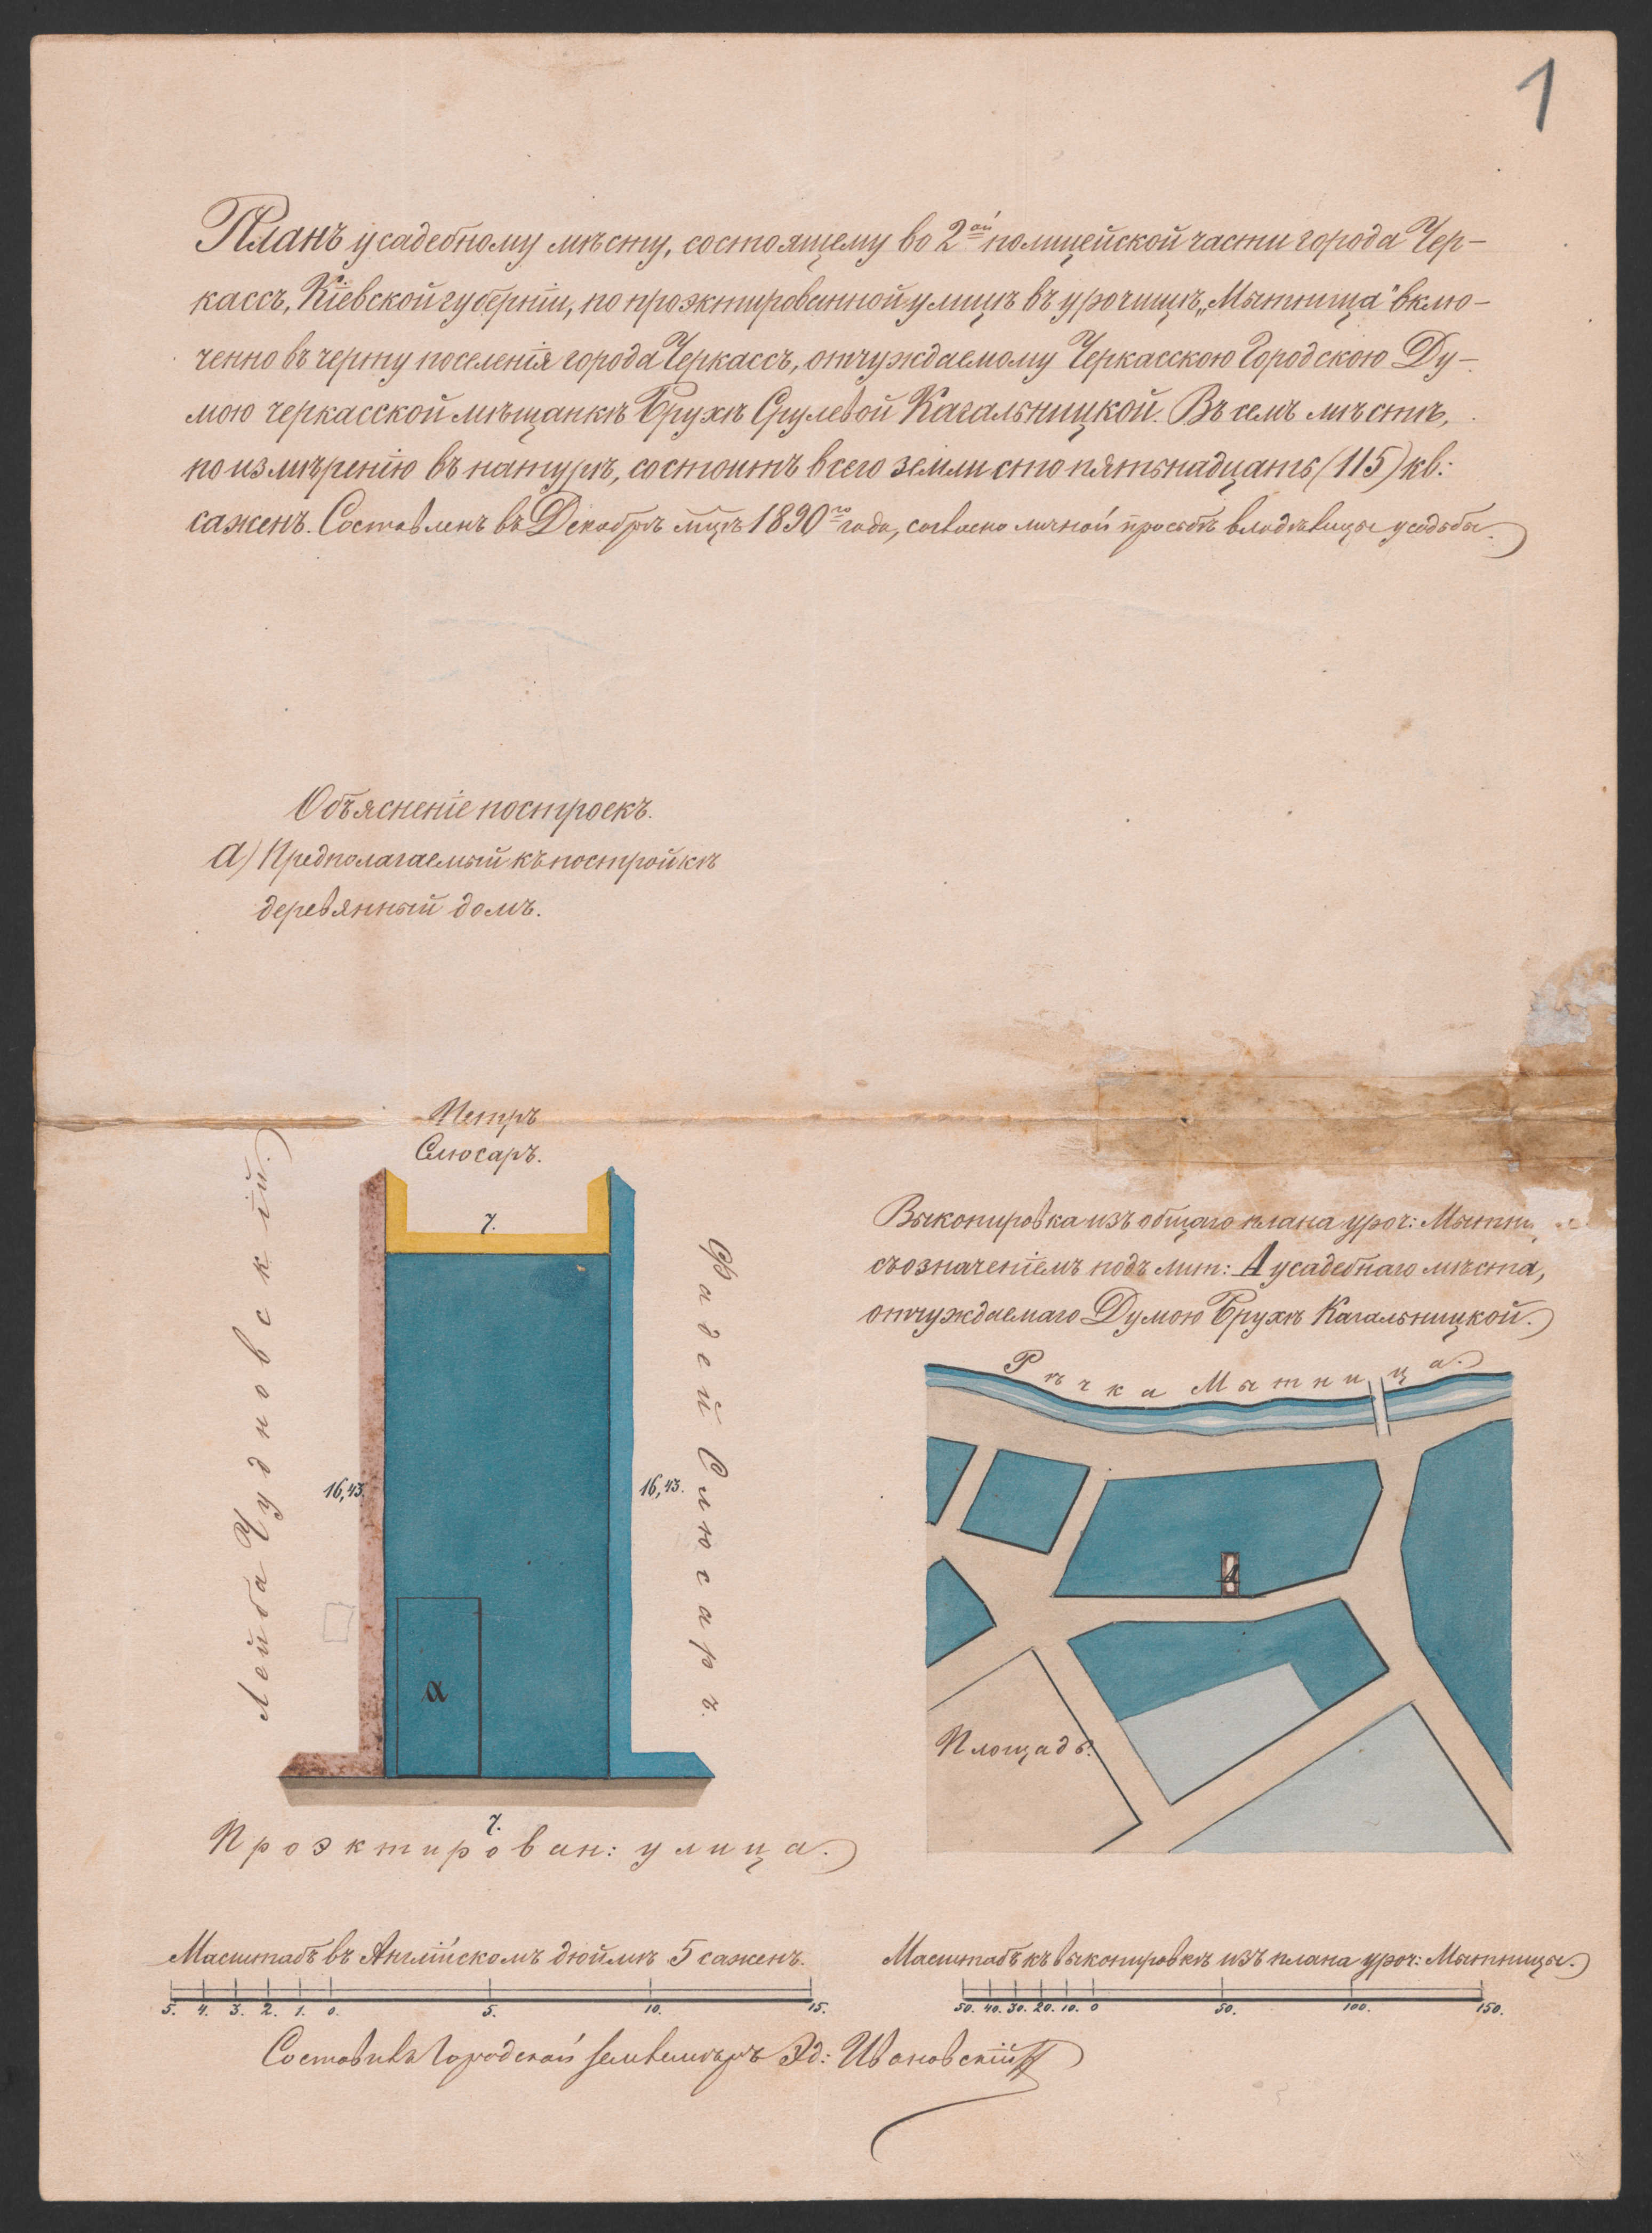 1
Планъ усадебному мѣсту, состоящему во 2ой полицейской части города Чер-
кассъ, Кіевской губерніи, по проэктированной улицѣ въ урочищѣ „Мытница" вклю-
ченно въ черту поселенія города Черкассъ, отчуждаемому Черкасскою Городскою Ду-
мою черкасской мѣщанкѣ Брухѣ Срулевой Кагальницкой. Въ семъ мѣстѣ,
по измѣренію въ натурѣ, состоитъ всего земли сто пятьнадцать (115) кв:
саженъ. Составленъ въ Декабрѣ мцѣ 1890го года, согласно личной просьбѣ владѣлицы усадьбы.
Объясненіе построекъ.
а) Предполагаемый къ постройкѣ
деревянный домъ.
Петръ
Слюсаръ.
7.
Лейба Чудновскій.
16,43.
16,43.
Фадей Слюсаръ.
а
7.
Проэктирован: улица.
Выкопировка изъ общаго плана уроч: Мытни
съ означеніемъ подъ лит: А усадебнаго мѣста,
отчуждаемаго Думою Брухѣ Кагальницкой.
Рѣчка Мытница.
А
Площадь.
Масштабъ въ Англійскомъ дюймѣ 5 саженъ.
5. 4. 3. 2. 1. 0. 5. 10. 15.
Масштабъ къ выкопировкѣ изъ плана уроч: Мытницы.
50. 40. 30. 20. 10. 0 50. 100. 150.
Составилъ Городской Землемѣръ Эд: Ивановскій